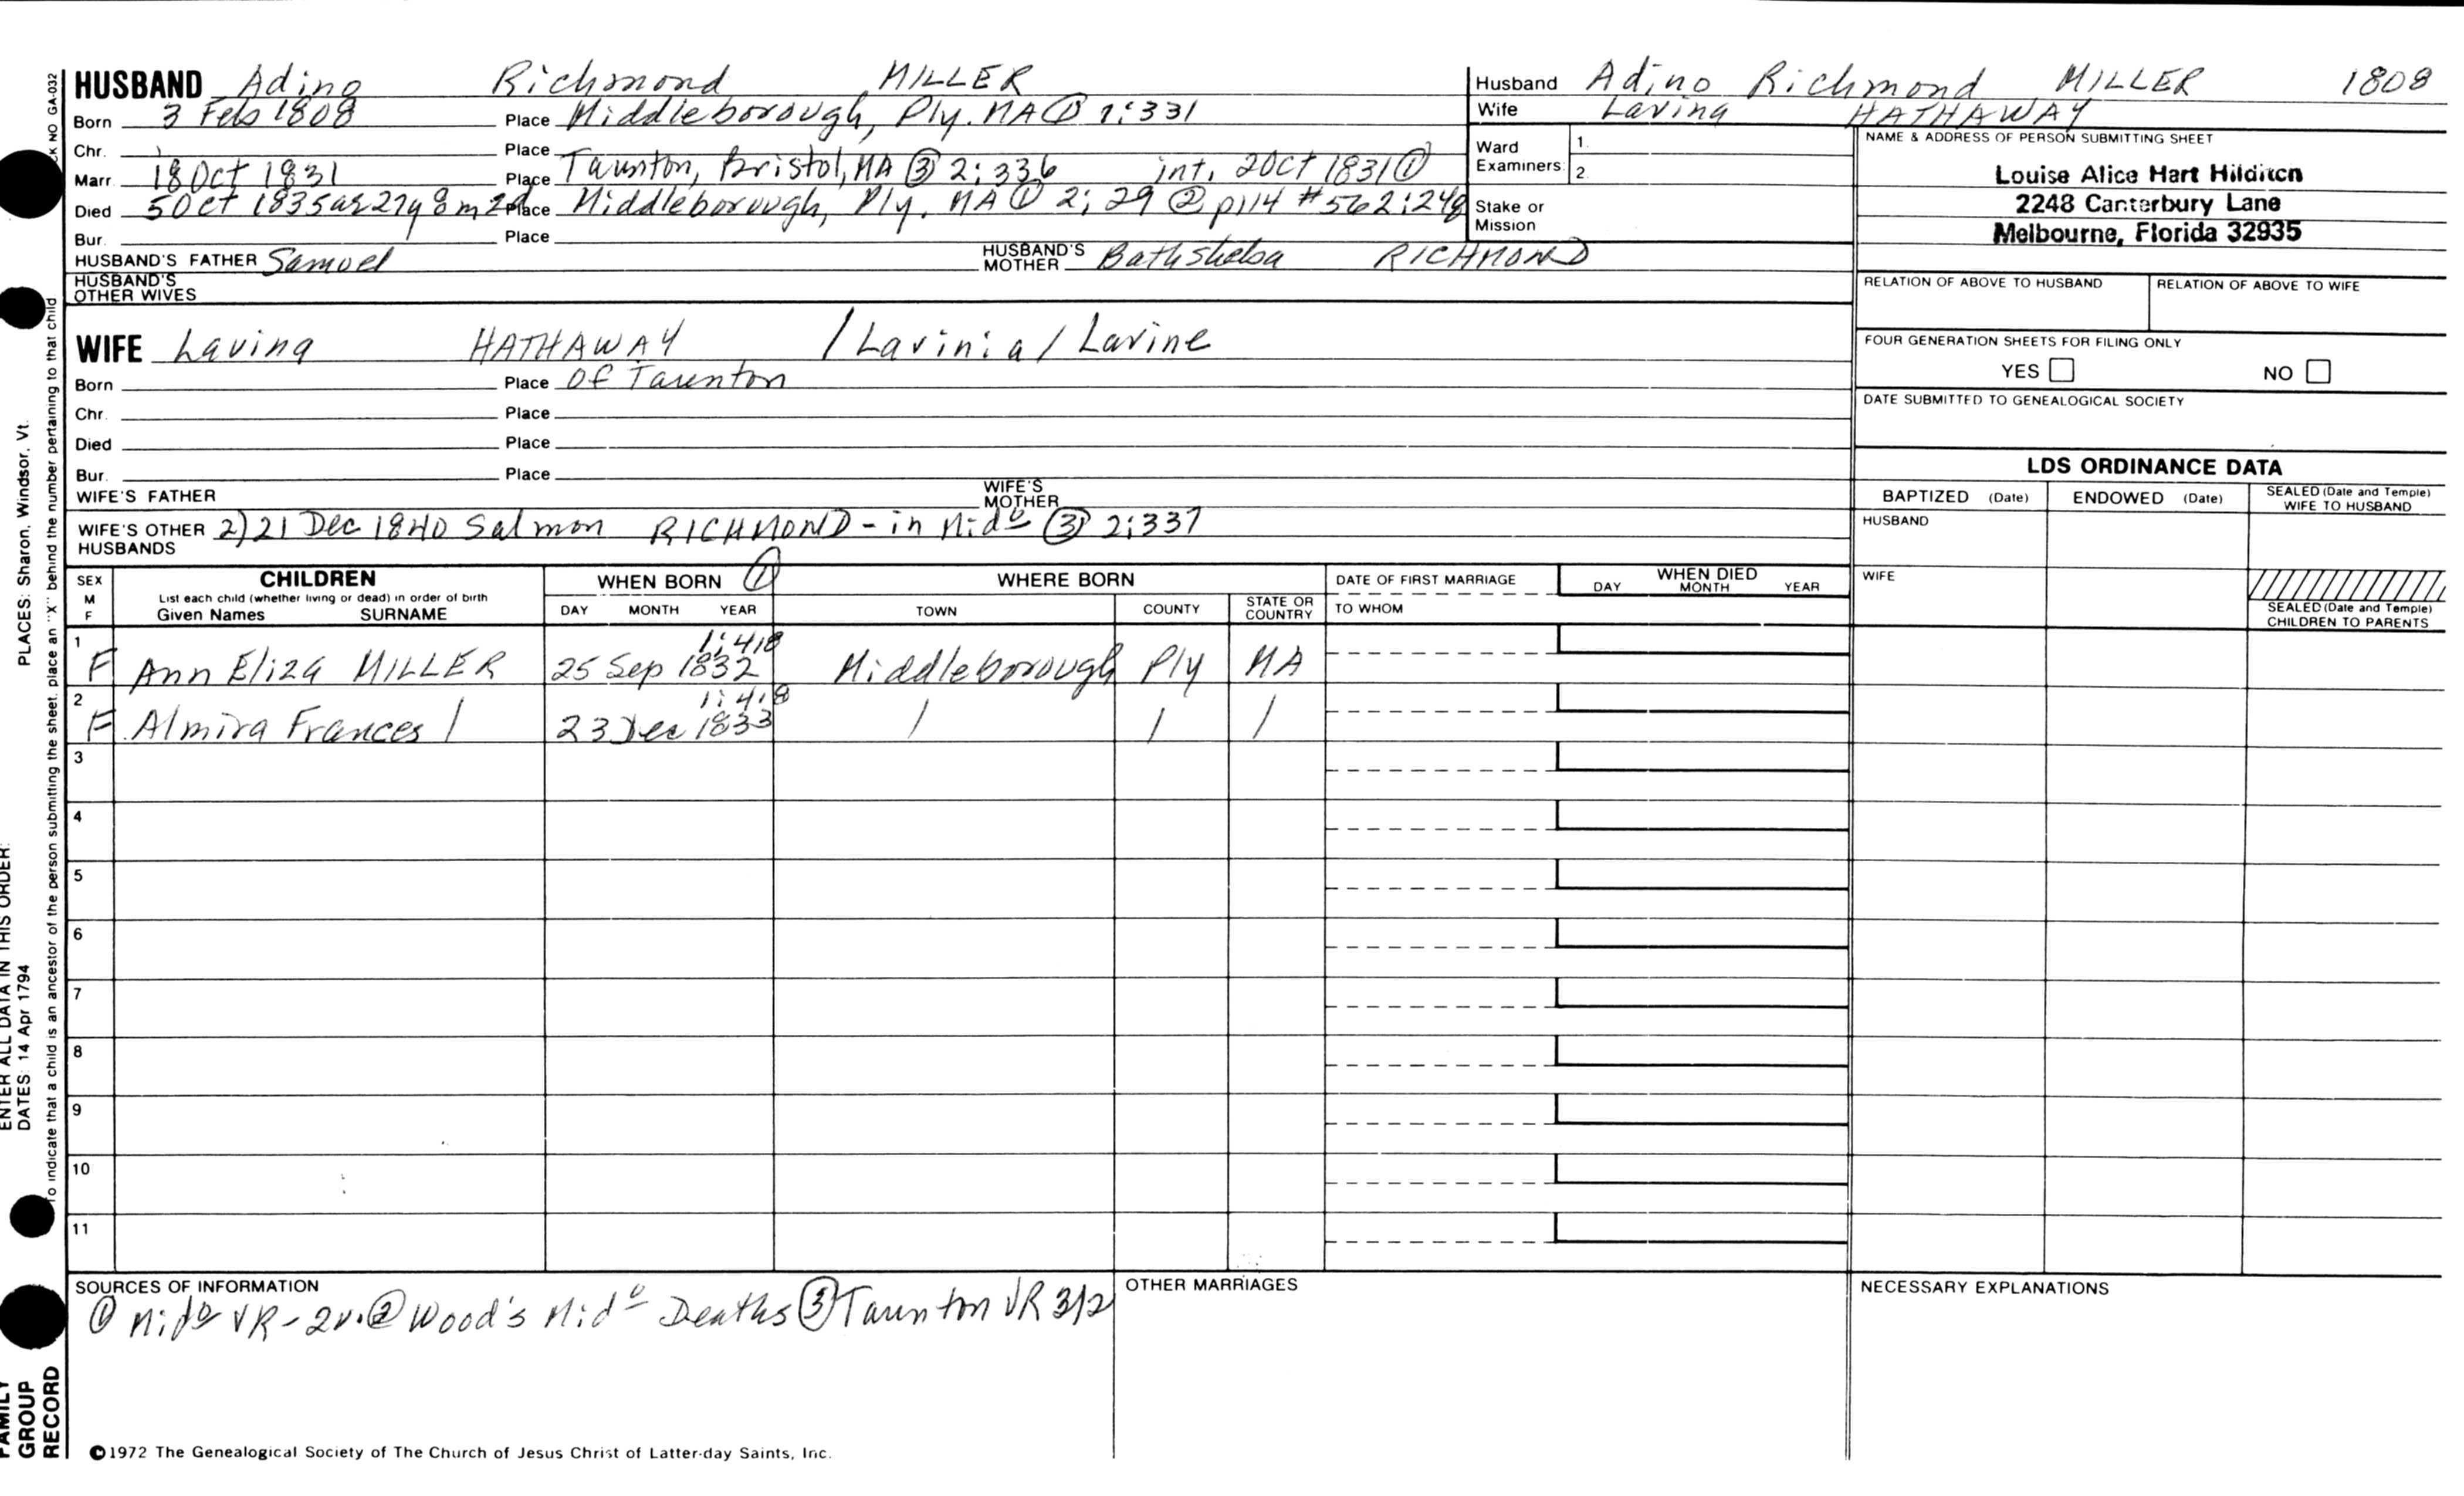 HUSBAND Adino Richmond MILLER
Born 3 Feb 1808 Place Middleborough, Ply. MA ① 1:331
Chr. Place
Marr. 18 Oct 1831 Place Taunton, Bristol, MA ③ 2:336 int. 2 Oct 1831 ①
Died 5 Oct 1835 ae 27y 8m 2d Place Middleborough, Ply. MA ① 2:29 ② p114 #562:248
Bur. Place
HUSBAND'S FATHER Samuel HUSBAND'S MOTHER Bathsheba RICHMOND
HUSBAND'S OTHER WIVES
Husband Adino Richmond MILLER 1808
Wife Lavina HATHAWAY
Ward Examiners: 1. 2.
Stake or Mission
NAME & ADDRESS OF PERSON SUBMITTING SHEET
Louise Alice Hart Hilditch
2248 Canterbury Lane
Melbourne, Florida 32935
RELATION OF ABOVE TO HUSBAND RELATION OF ABOVE TO WIFE
FOUR GENERATION SHEETS FOR FILING ONLY
YES NO
DATE SUBMITTED TO GENEALOGICAL SOCIETY
WIFE Lavina HATHAWAY / Lavinia / Lavine
Born Place Of Taunton
Chr. Place
Died Place
Bur. Place
WIFE'S FATHER WIFE'S MOTHER
WIFE'S OTHER HUSBANDS 2) 21 Dec 1840 Salmon RICHMOND - in Mido ③ 2:337
LDS ORDINANCE DATA
BAPTIZED (Date) ENDOWED (Date) SEALED (Date and Temple) WIFE TO HUSBAND
HUSBAND
WIFE
SEALED (Date and Temple) CHILDREN TO PARENTS
SEX M F
CHILDREN
List each child (whether living or dead) in order of birth
Given Names SURNAME
WHEN BORN ①
DAY MONTH YEAR
WHERE BORN
TOWN COUNTY STATE OR COUNTRY
DATE OF FIRST MARRIAGE
TO WHOM
WHEN DIED
DAY MONTH YEAR
1 1:418
F Ann Eliza MILLER 25 Sep 1832 Middleborough Ply MA
2 1:418
F Almira Frances / 23 Dec 1833 / / /
3
4
5
6
7
8
9
10
11
SOURCES OF INFORMATION
① Mido VR-2v. ② Wood's Mido Deaths ③ Taunton VR 3/2
OTHER MARRIAGES
NECESSARY EXPLANATIONS
©1972 The Genealogical Society of The Church of Jesus Christ of Latter-day Saints, Inc.
FAMILY GROUP RECORD
ENTER ALL DATA IN THIS ORDER:
DATES: 14 Apr 1794
PLACES: Sharon, Windsor, Vt.
To indicate that a child is an ancestor of the person submitting the sheet, place an "X" behind the number pertaining to that child
NO GA-032